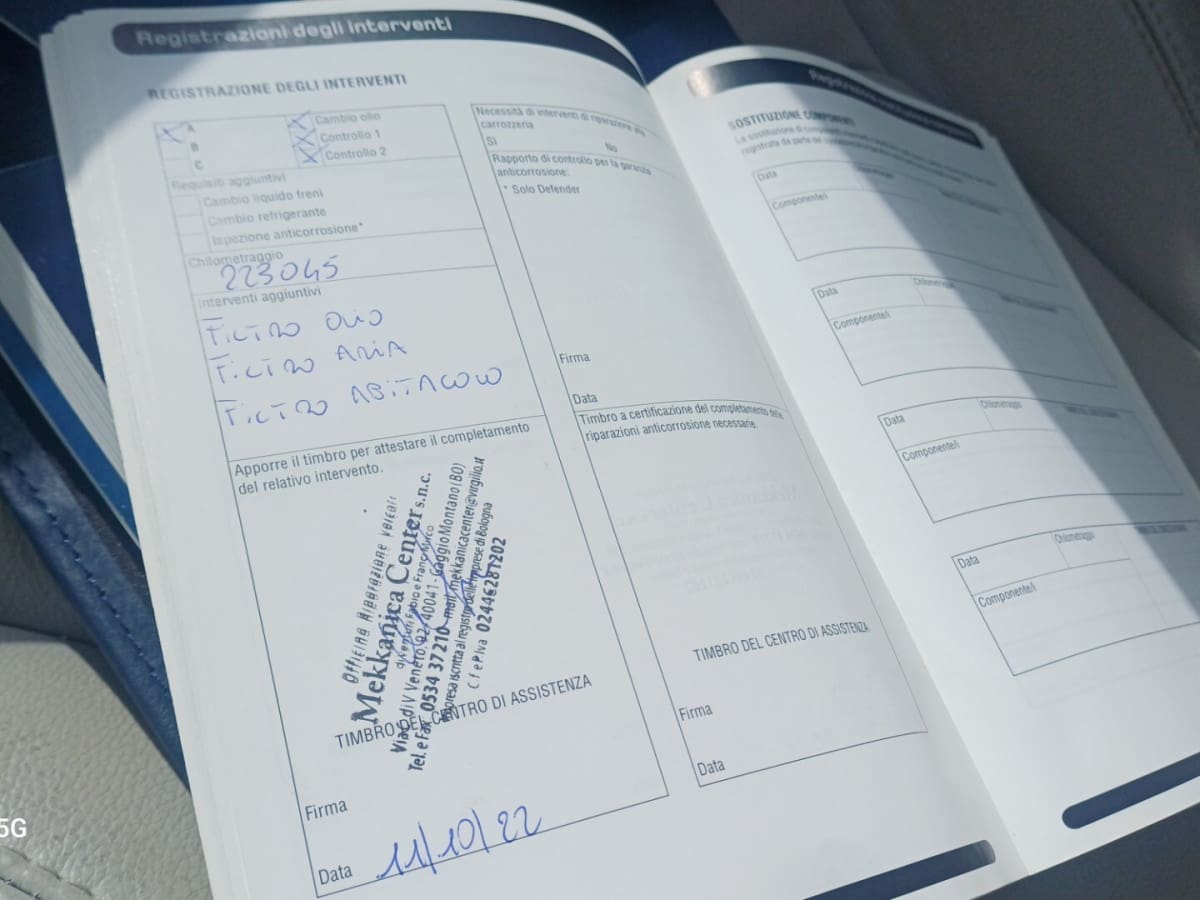 Registrazioni degli interventi
REGISTRAZIONE DEGLI INTERVENTI
A
B
C
Cambio olio
Controllo 1
Controllo 2
Requisiti aggiuntivi
Cambio liquido freni
Cambio refrigerante
Ispezione anticorrosione*
Chilometraggio
223045
Interventi aggiuntivi
FILTRO OLIO
FILTRO ARIA
FILTRO ABITACOLO
Apporre il timbro per attestare il completamento
del relativo intervento.
Officina Riparazione Veicoli
Mekkanica Center s.n.c.
di Venturi Fabio e Franc
Via
di V Veneto, 92 - 40041 - Gaggio Montano (BO)
Tel. e Fax 0534 37210 mail: mekkanicacenter@virgilio.it
Impresa iscritta al registro delle Imprese di Bologna
C f e P Iva 02446281202
TIMBRO DEL CENTRO DI ASSISTENZA
Firma
Data 11/10/22
Necessità di interventi di riparazione alla
carrozzeria
Sì No
Rapporto di controllo per la garanzia
anticorrosione:
* Solo Defender
Firma
Data
Timbro a certificazione del completamento delle
riparazioni anticorrosione necessarie.
TIMBRO DEL CENTRO DI ASSISTENZA
Firma
Data
SOSTITUZIONE COMPONENTI
La sostituzione di componenti
registrata da parte del
Data
Componente/i
Data Chilometraggio
Componente/i
Data Chilometraggio
Componente/i
Data Chilometraggio
Componente/i
5G